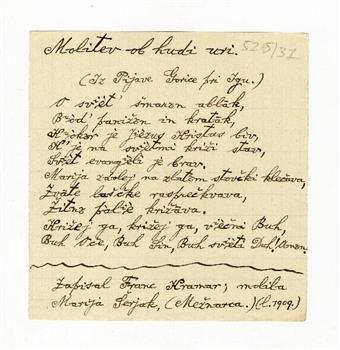 Molitev ob hudi uri. 525/37
(Iz Pijave Gorice pri Igu.)
O svjet' šmarn ablak,
Bod' panižen in kratak,
K je Jezus Kristus biv,
K' je na svjetmi križi stav,
Svjet evangeli je brav.
Marija zdolej na zlatem stovčki klečava,
Zvate lasčke rasprečkvava,
Žitnz palje križava.
Križej ga, križej ga, vječni Buh,
Buh Oče, Buh Sin, Buh svjeti Duh! Amzn.
Zapisal Franc Kramar; molila
Marija Šerjak, (Mežnarca.) (l. 1909.)